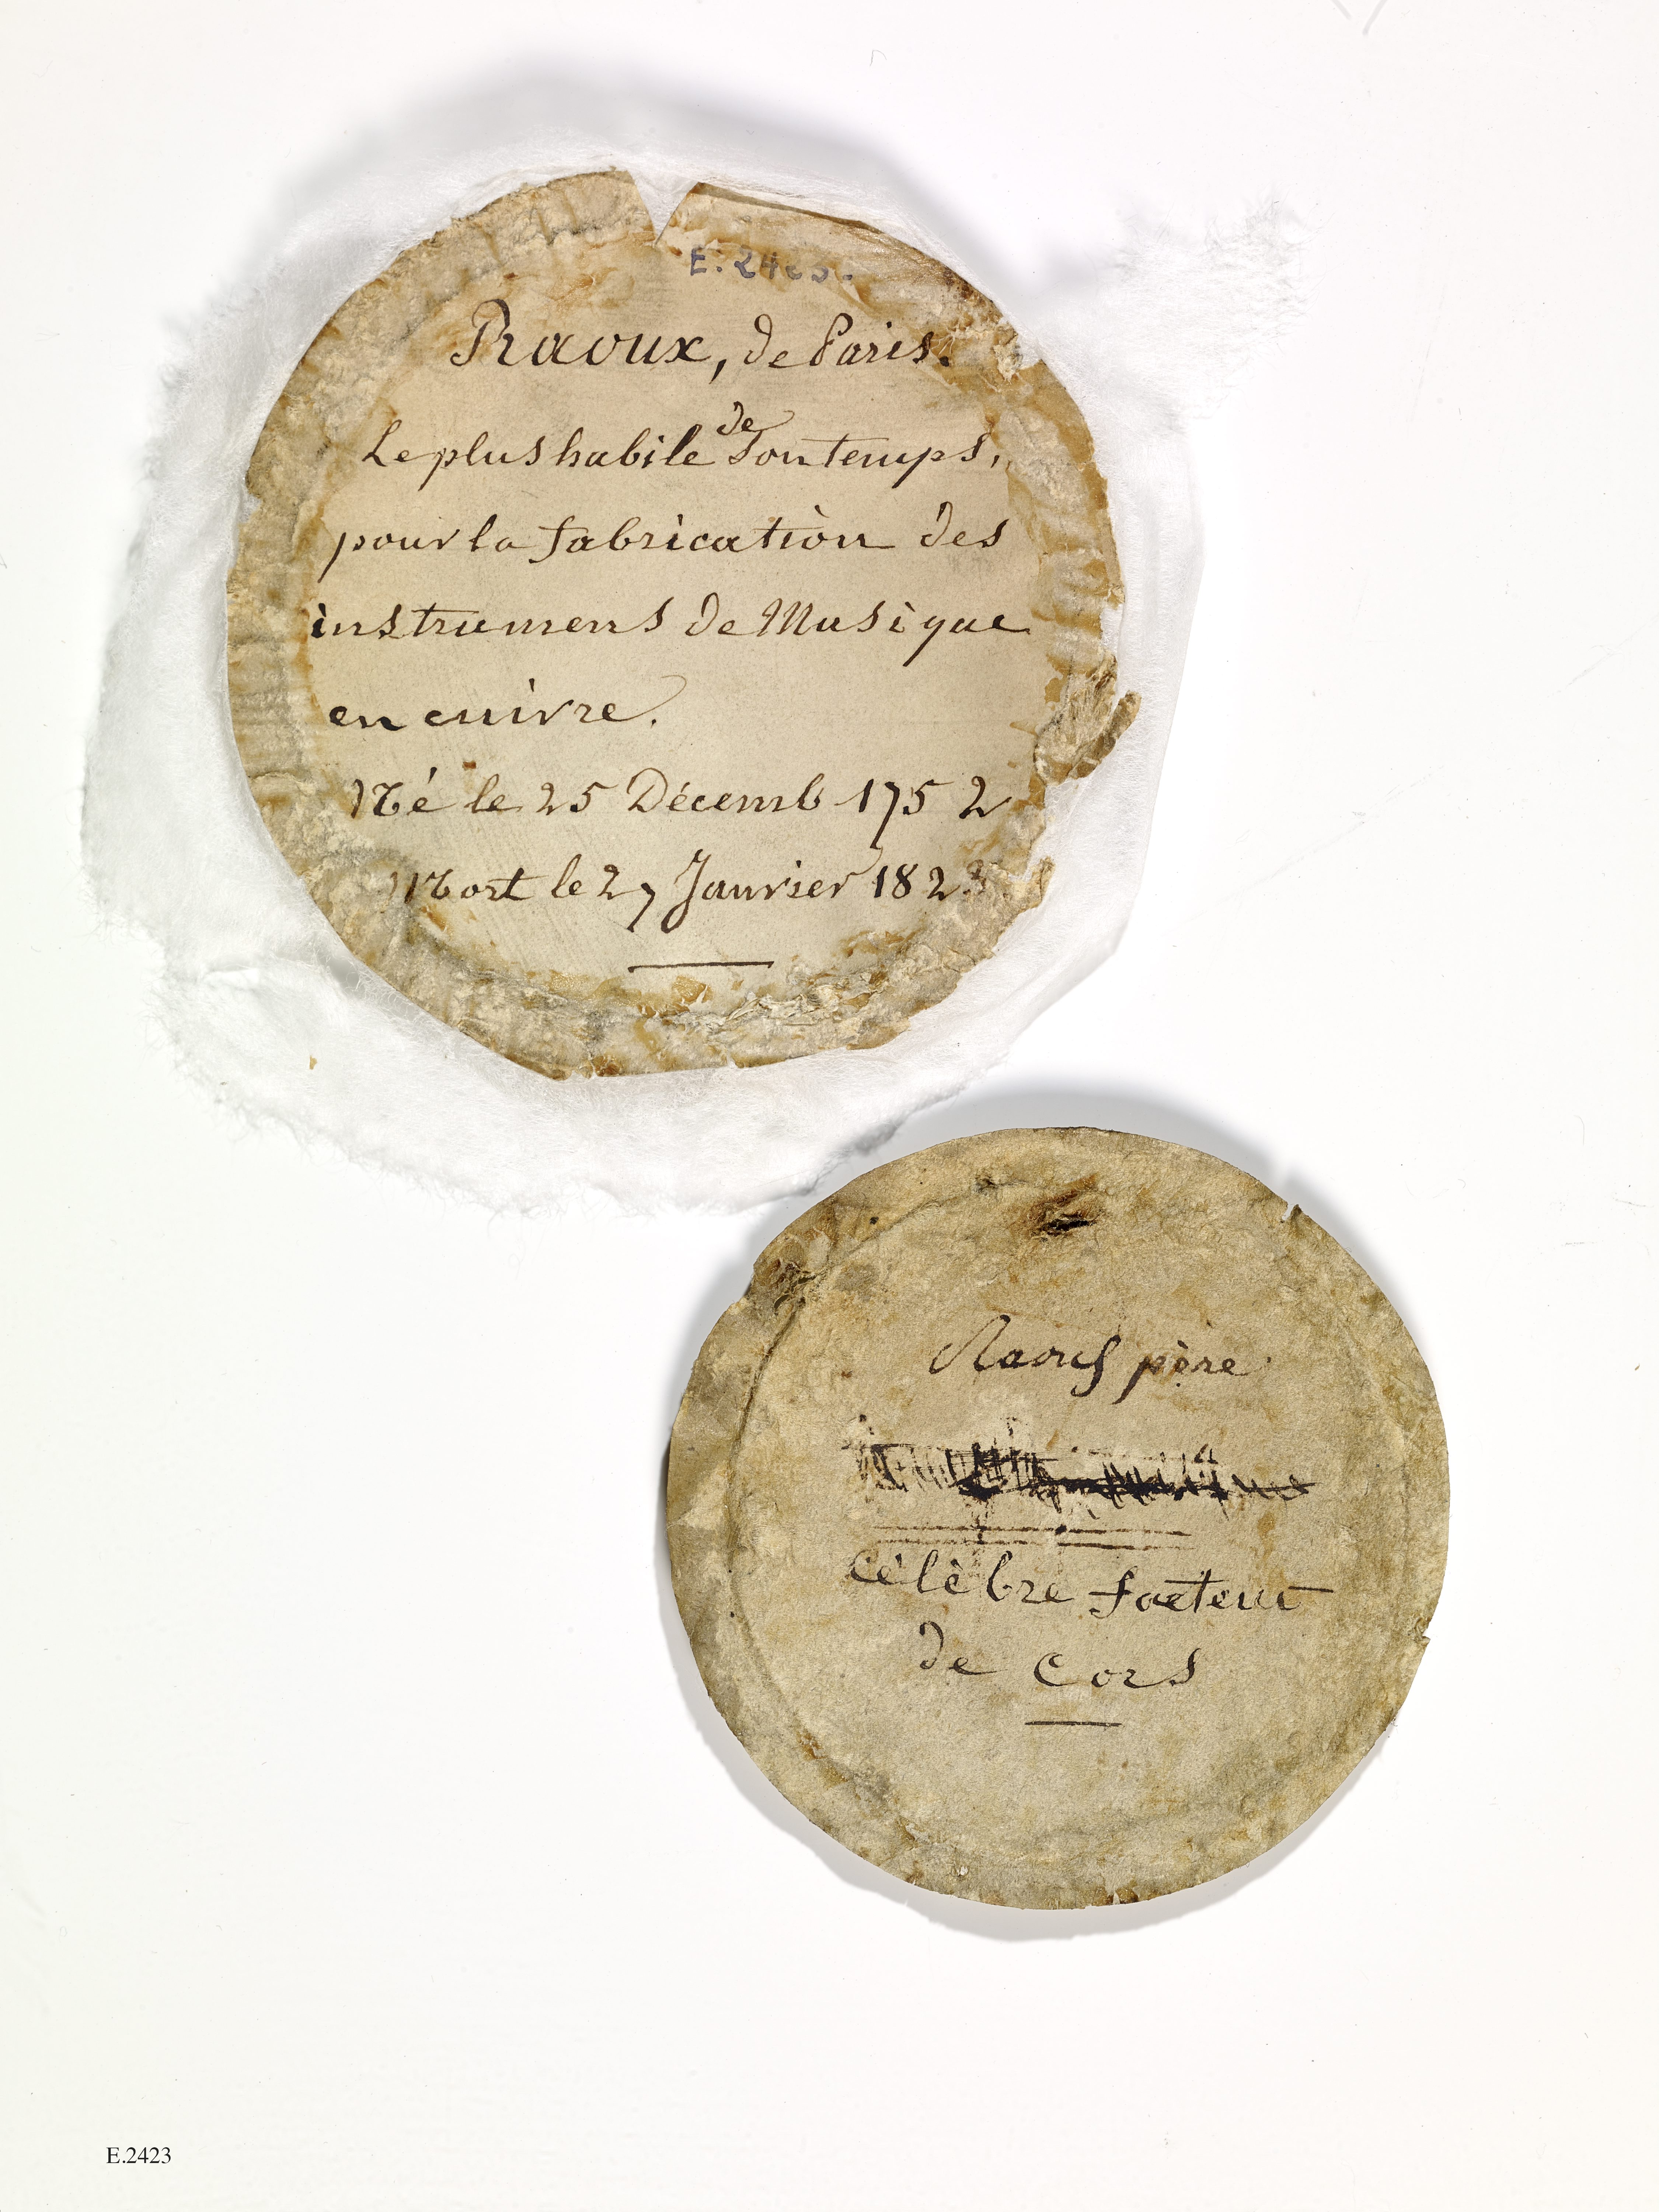 E. 2423.
Raoux, de Paris.
Le plus habile de Son temps,
pour la fabrication des
instrumens de Musique
en cuivre.
Né le 25 Décemb 1752
Mort le 27 Janvier 1823
Raoux père
Célèbre facteur
de Cors
E.2423